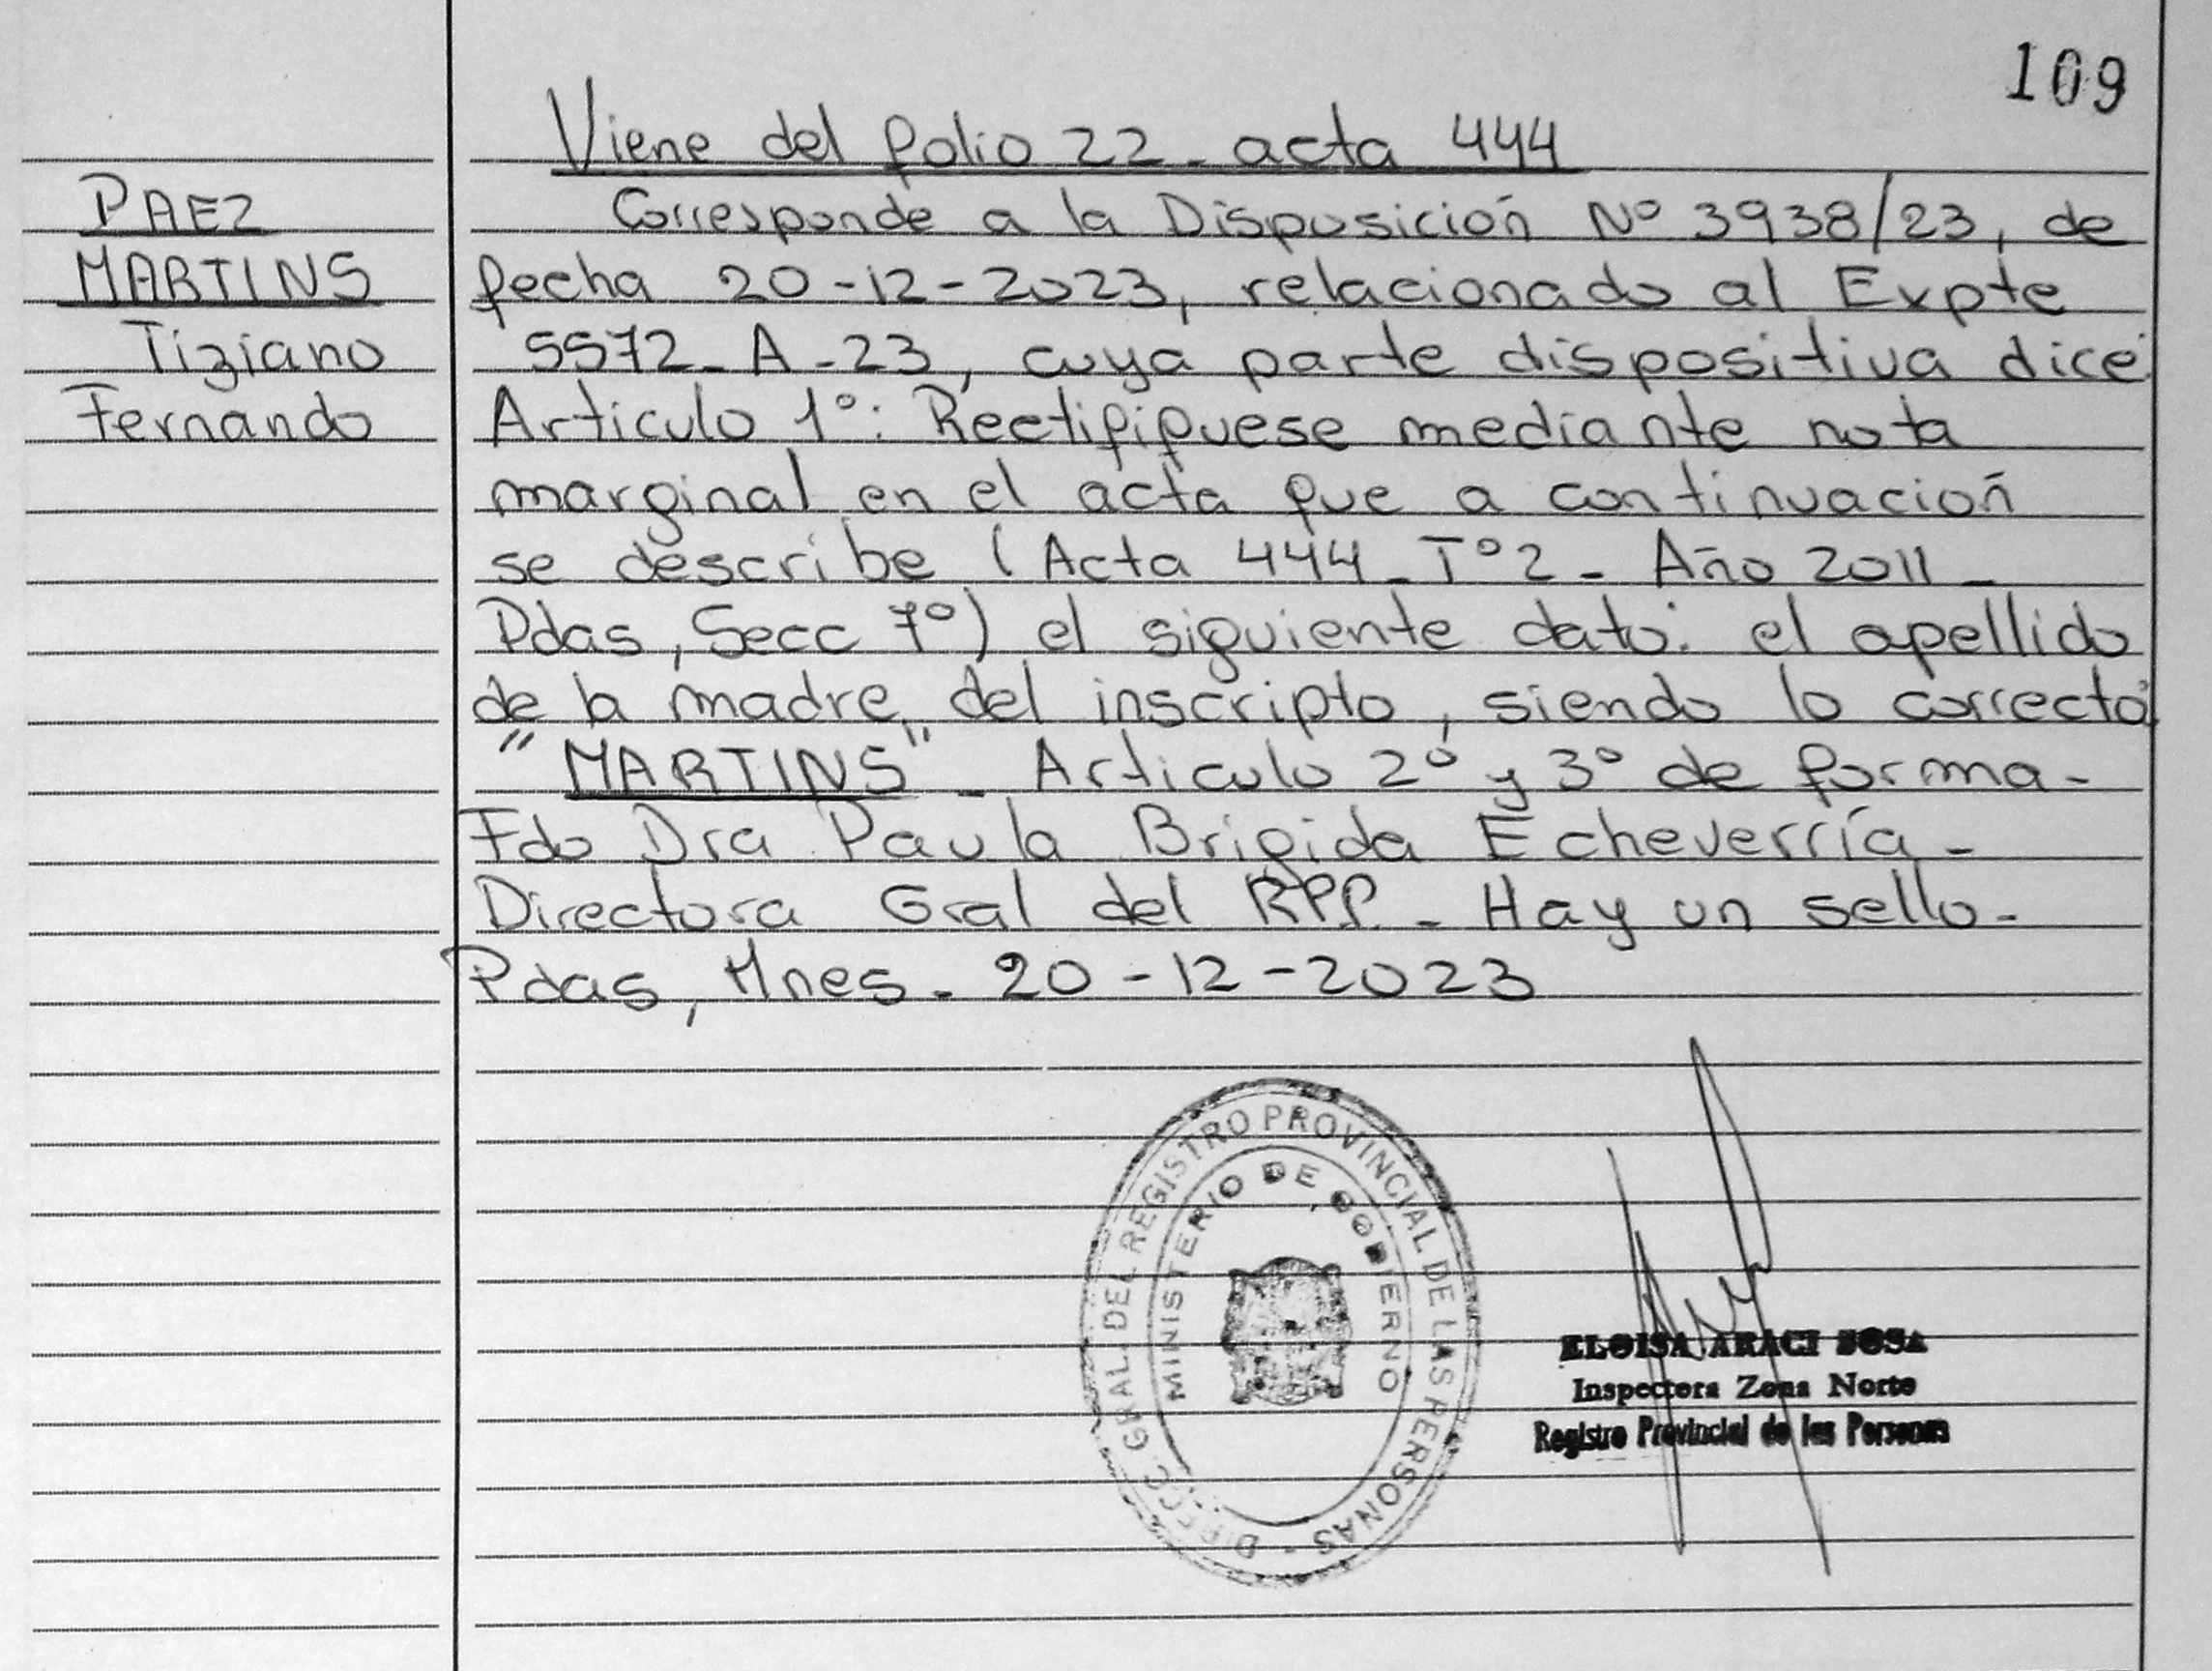 109
Viene del folio 22 - acta 444
PAEZ
MARTINS
Tiziano
Fernando
Corresponde a la Disposición Nº 3938/23, de
fecha 20-12-2023, relacionado al Expte
5572-A-23, cuya parte dispositiva dice
Articulo 1º: Rectifiquese mediante nota
marginal en el acta que a continuación
se describe (Acta 444 - Tº2 - Año 2011 -
Pdas, Secc 7º) el siguiente dato: el apellido
de la madre del inscripto, siendo lo correcto:
"MARTINS" - Articulo 2º y 3º de forma -
Fdo Dra Paula Brigida Echeverría -
Directora Gral del RPP - Hay un sello -
Pdas, Mnes - 20-12-2023
DIRECC. GRAL. DEL REGISTRO PROVINCIAL DE LAS PERSONAS -
MINISTERIO DE GOBIERNO
ELOISA ARACI SOSA
Inspectora Zona Norte
Registro Provincial de las Personas